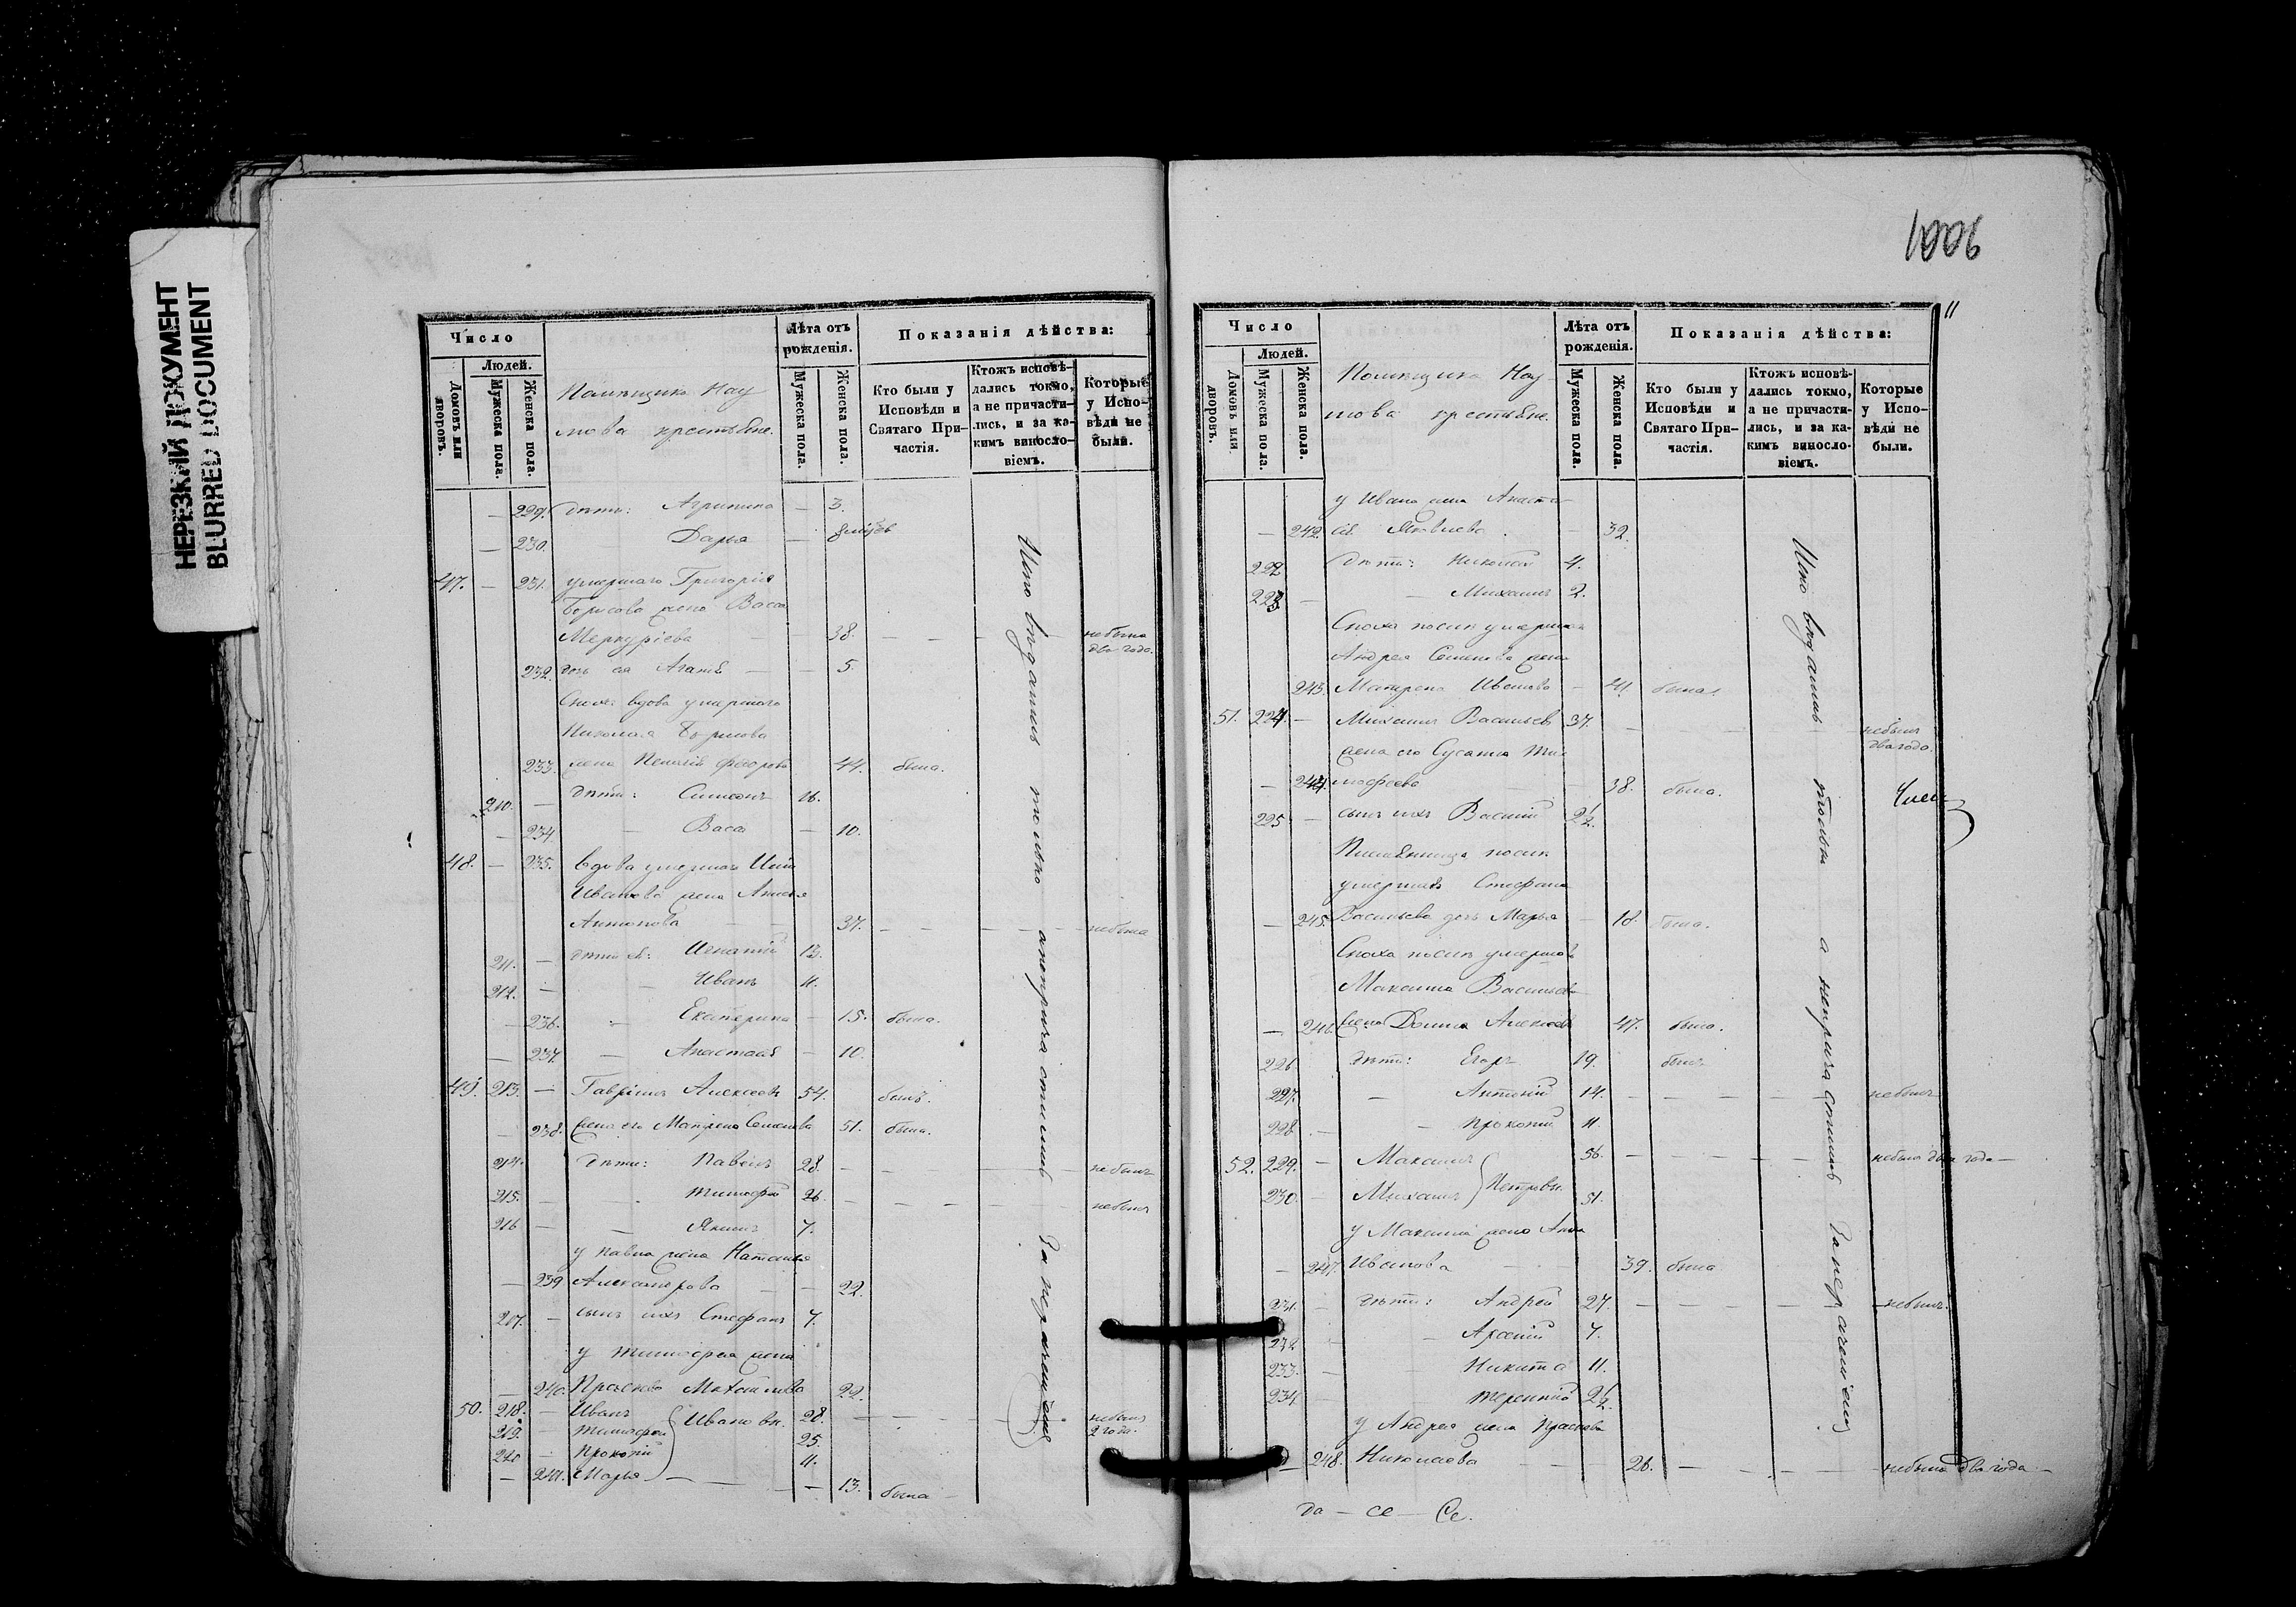 НЕРЕЗКИЙ ДОКУМЕНТ
BLURRED DOCUMENT
1006
11
Число
Людей.
Домовъ или дворовъ.
Мужеска пола.
Женска пола.
Помѣщика Нау
мова крестьяне.
Лѣта отъ рожденія.
Мужеска пола.
Женска пола.
Показанія дѣйства:
Кто были у Исповѣди и Святаго При-частія.
Ктожъ исповѣ-дались токмо, а не причасти-лись, и за ка-кимъ винословіемъ.
Которые у Испо-вѣди не были.
— 229. дѣти: Агрипина — 3.
— 230. Дарья —
47. — 231. умершаго Григорія
Борисова жена Васса
Меркуріева 38. — — — не была два года.
232. дочь ея Агаѳія — — 5.
Сноха вдова умершаго
Николая Борисова
233. жена Пелагія Федорова 44. была.
210. — дѣти: Симеонъ 16.
— 234. — Васса — 10.
48. — 235. Вдова умершаго
Иванова жена
Антонова — — 37. — — — — не была
211. — дѣти ея: Игнатій 13.
212. — — Иванъ 11.
— 236. Екатерина — 15. была.
— 237. — Анастасія — 10.
49. 213. — Гавріилъ Алексеевъ 54. былъ.
— 238. жена его Матрена Семенова 51. была.
214. дѣти: Павелъ 28. — — — не былъ
215. — Тимофей 26 — — — — не былъ
216 — — Якимъ 7.
у Павла жена Наталья
— 239 Александрова — — 22.
217. — сынъ ихъ Стефанъ 7.
у Тимофея жена
— 240. Прасковья Михайлова 22.
50. 218. — Иванъ Ивановы. 28. — — — не былъ 2 года.
219. — Тимофей 25.
220 — Прокопій 11.
— 241. Марья — — — — 13. была
Исповѣдались только а не причастились За нераченіемъ
Число
Людей.
Домовъ или дворовъ.
Мужеска пола.
Женска пола.
Помѣщика Нау
мова крестьяне.
Лѣта отъ рожденія.
Мужеска пола.
Женска пола.
Показанія дѣйства:
Кто были у Исповѣди и Святаго При-частія.
Ктожъ исповѣ-дались токмо, а не причасти-лись, и за ка-кимъ винословіемъ.
Которые у Испо-вѣди не были.
у Ивана жена Анаста
— 242. сія Яковлева. — 32.
222 дѣти: Николай 4.
223 — — Михаилъ 2.
Сноха послѣ умершаго
Андрея Семенова жена
243. Матрена Иванова — была.
51. 224. — Михаилъ Васильевъ 37. — — — не былъ два года.
жена его Сусанна Ти
— 244. мофеева 38. была.
225 — сынъ ихъ Василій 2½.
Племянница послѣ
умершаго Стефана
— 245. Васильева дочь Марья — 18. была.
Сноха послѣ умершаго
Максима Васильева
— 246. жена Домна 47. была.
226 дѣти: Егоръ 19. былъ
227. — Антоній 14. — — — — не былъ
228 — — Прокопій 11.
52. 229. — Максимъ Петровы. 56. — — — — не былъ два года —
230. — Михаилъ 51.
у Максима жена Анна
— 247. Иванова — — 39. была
231. — дѣти: Андрей 27. — — — — не былъ.
232 — — Арсеній 7.
233. — Никита 11.
234 — Терентій 2½.
у Андрея жена Прасковья
— 248. Николаева — — 26. — — — — не была два года. —
Исповѣдались только а не причастились За нераченіемъ
да — се — Се.